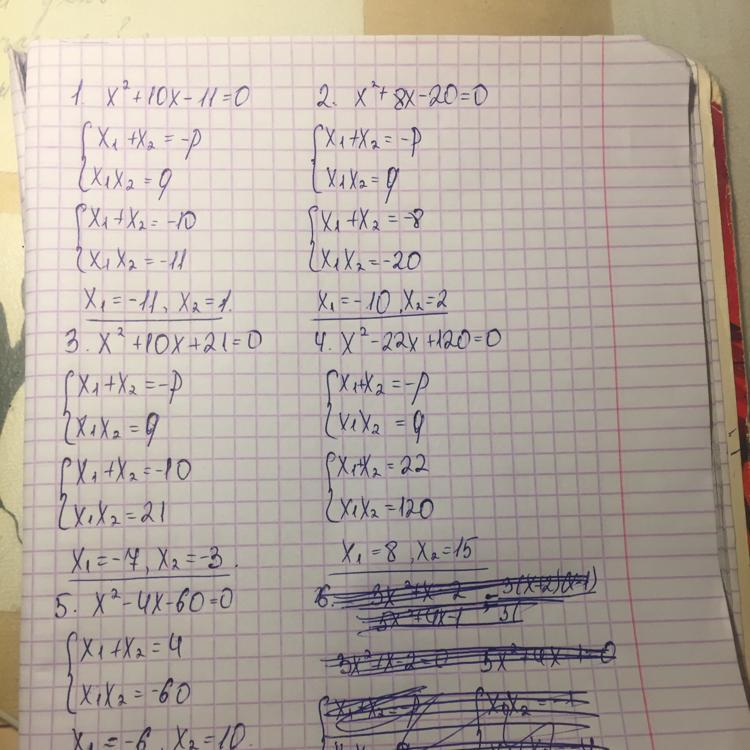 1. x²+10x-11=0
{x₁+x₂=-p
x₁x₂=q
{x₁+x₂=-10
x₁x₂=-11
x₁=-11, x₂=1.
2. x²+8x-20=0
{x₁+x₂=-p
x₁x₂=q
{x₁+x₂=-8
x₁x₂=-20
x₁=-10, x₂=2
3. x²+10x+21=0
{x₁+x₂=-p
x₁x₂=q
{x₁+x₂=-10
x₁x₂=21
x₁=-7, x₂=-3.
4. x²-22x+120=0
{x₁+x₂=-p
x₁x₂=q
{x₁+x₂=22
x₁x₂=120
x₁=8, x₂=15
5. x²-4x-60=0
{x₁+x₂=4
x₁x₂=-60
x₁=-6, x₂=10.
6.
3x²+x-2=0